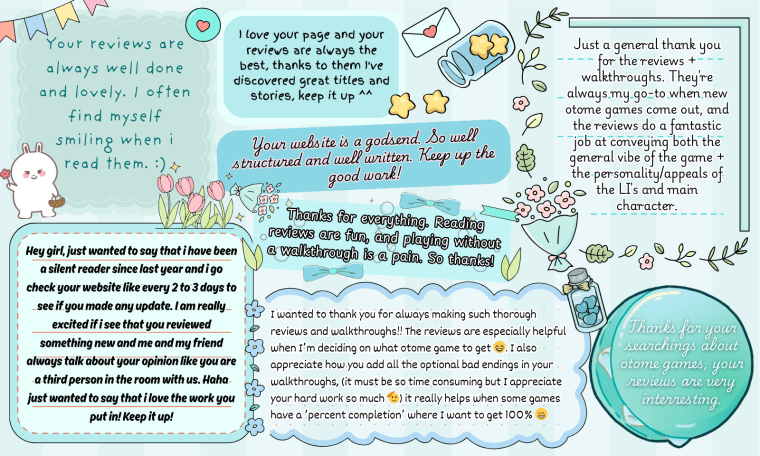 Your reviews are
always well done
and lovely. I often
find myself
smiling when i
read them. :)
I love your page and your
reviews are always the
best, thanks to them I've
discovered great titles and
stories, keep it up ^^
Just a general thank you
for the reviews +
walkthroughs. They're
always my go-to when new
otome games come out, and
the reviews do a fantastic
job at conveying both the
general vibe of the game +
the personality/appeals of
the LI's and main
character.
Your website is a godsend. So well
structured and well written. Keep up the
good work!
Thanks for everything. Reading
reviews are fun, and playing without
a walkthrough is a pain. So thanks!
Hey girl, just wanted to say that i have been
a silent reader since last year and i go
check your website like every 2 to 3 days to
see if you made any update. I am really
excited if i see that you reviewed
something new and me and my friend
always talk about your opinion like you are
a third person in the room with us. Haha
just wanted to say that i love the work you
put in! Keep it up!
I wanted to thank you for always making such thorough
reviews and walkthroughs!! The reviews are especially helpful
when I'm deciding on what otome game to get 😄. I also
appreciate how you add all the optional bad endings in your
walkthroughs, (it must be so time consuming but I appreciate
your hard work so much 🫡) it really helps when some games
have a 'percent completion' where I want to get 100% 😄
Thanks for your
searchings about
otome games, your
reviews are very
interresting.